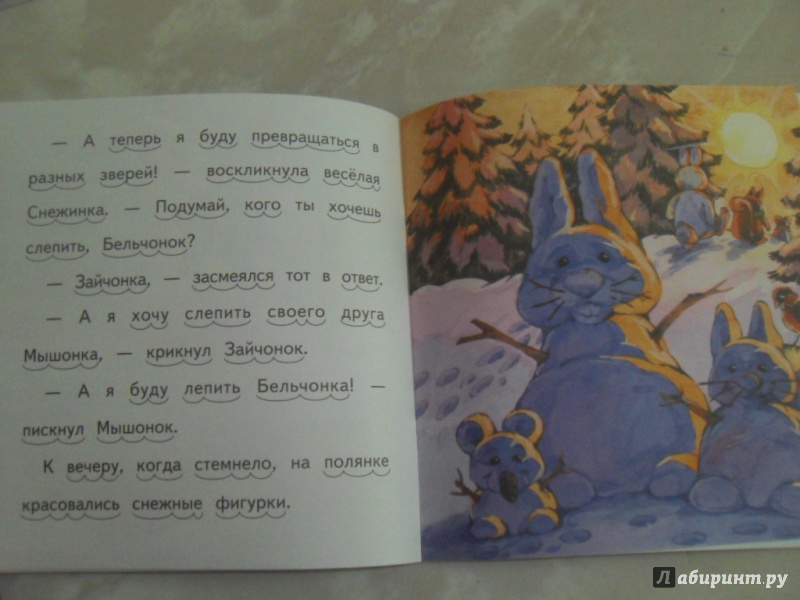 — А теперь я буду превращаться в
разных зверей! — воскликнула весёлая
Снежинка. — Подумай, кого ты хочешь
слепить, Бельчонок?
— Зайчонка, — засмеялся тот в ответ.
— А я хочу слепить своего друга
Мышонка, — крикнул Зайчонок.
— А я буду лепить Бельчонка! —
пискнул Мышонок.
К вечеру, когда стемнело, на полянке
красовались снежные фигурки.
Лабиринт.ру